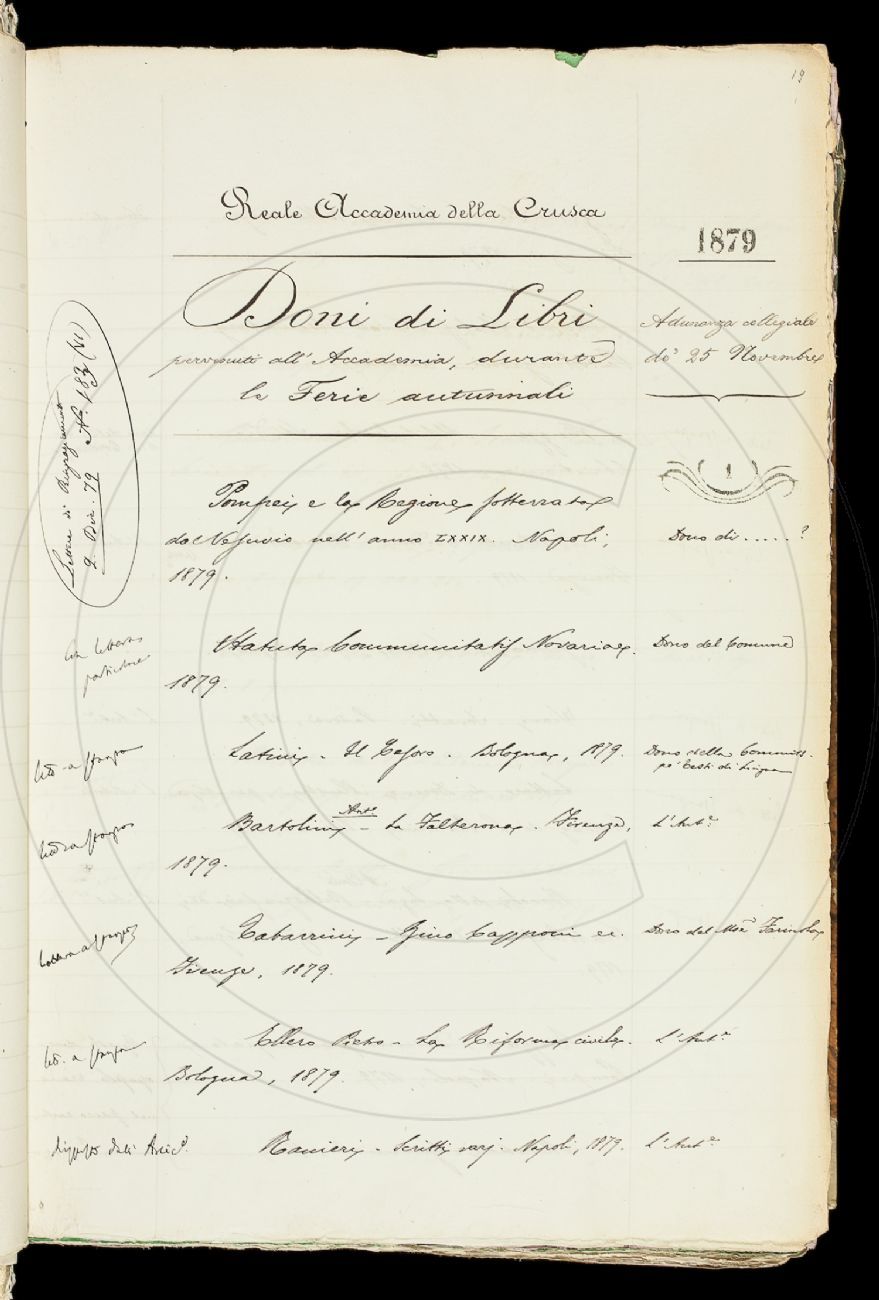 19
Reale Accademia della Crusca
1879
Doni di Libri
pervenuti all' Accademia, durante
le Ferie autunnali
Adunanza collegiale
de' 25 Novembre
Lettere di Ringraziamento
2 Dic. 79 N.
1
Pompei e la Regione sotterrata
dal Vesuvio nell' anno LXXIX. Napoli,
1879.
Dono di ..... ?
Con lettera
particolare
Statuta Communitatis Novariae.
1879.
Dono del Comune
lett. a stampa
Latini - Il Tesoro. Bologna, 1879.
Dono della Commiss.
pe' Testi di Lingua
lett. a stampa
Bartolini Ant.º - La Falterona. Firenze,
1879.
L'Aut.e
lettera a stampa
Tabarrini - Gino Capponi ec.
Firenze, 1879.
Dono del Mse Farinola
lett. a stampa
Ellero Pietro - La Riforma civile.
Bologna, 1879.
L'Aut.e
Ranieri - Scritti varj. Napoli, 1879.
L'Aut.e